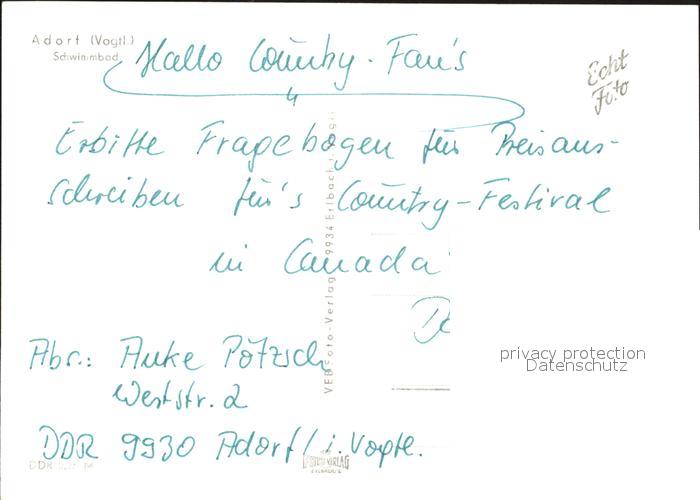 Adorf (Vogtl.)
Schwimmbad
Hallo Country-Fan's
Echt
Foto
Erbitte Fragebogen für Preisaus-
schreiben für's Country-Festival
in Canada
Abs.: Anke Pötzsch
Weststr. 2
DDR 9930 Adorf/i. Vogtl.
VEB Foto-Verlag 9934 Erlbach
privacy protection
Datenschutz